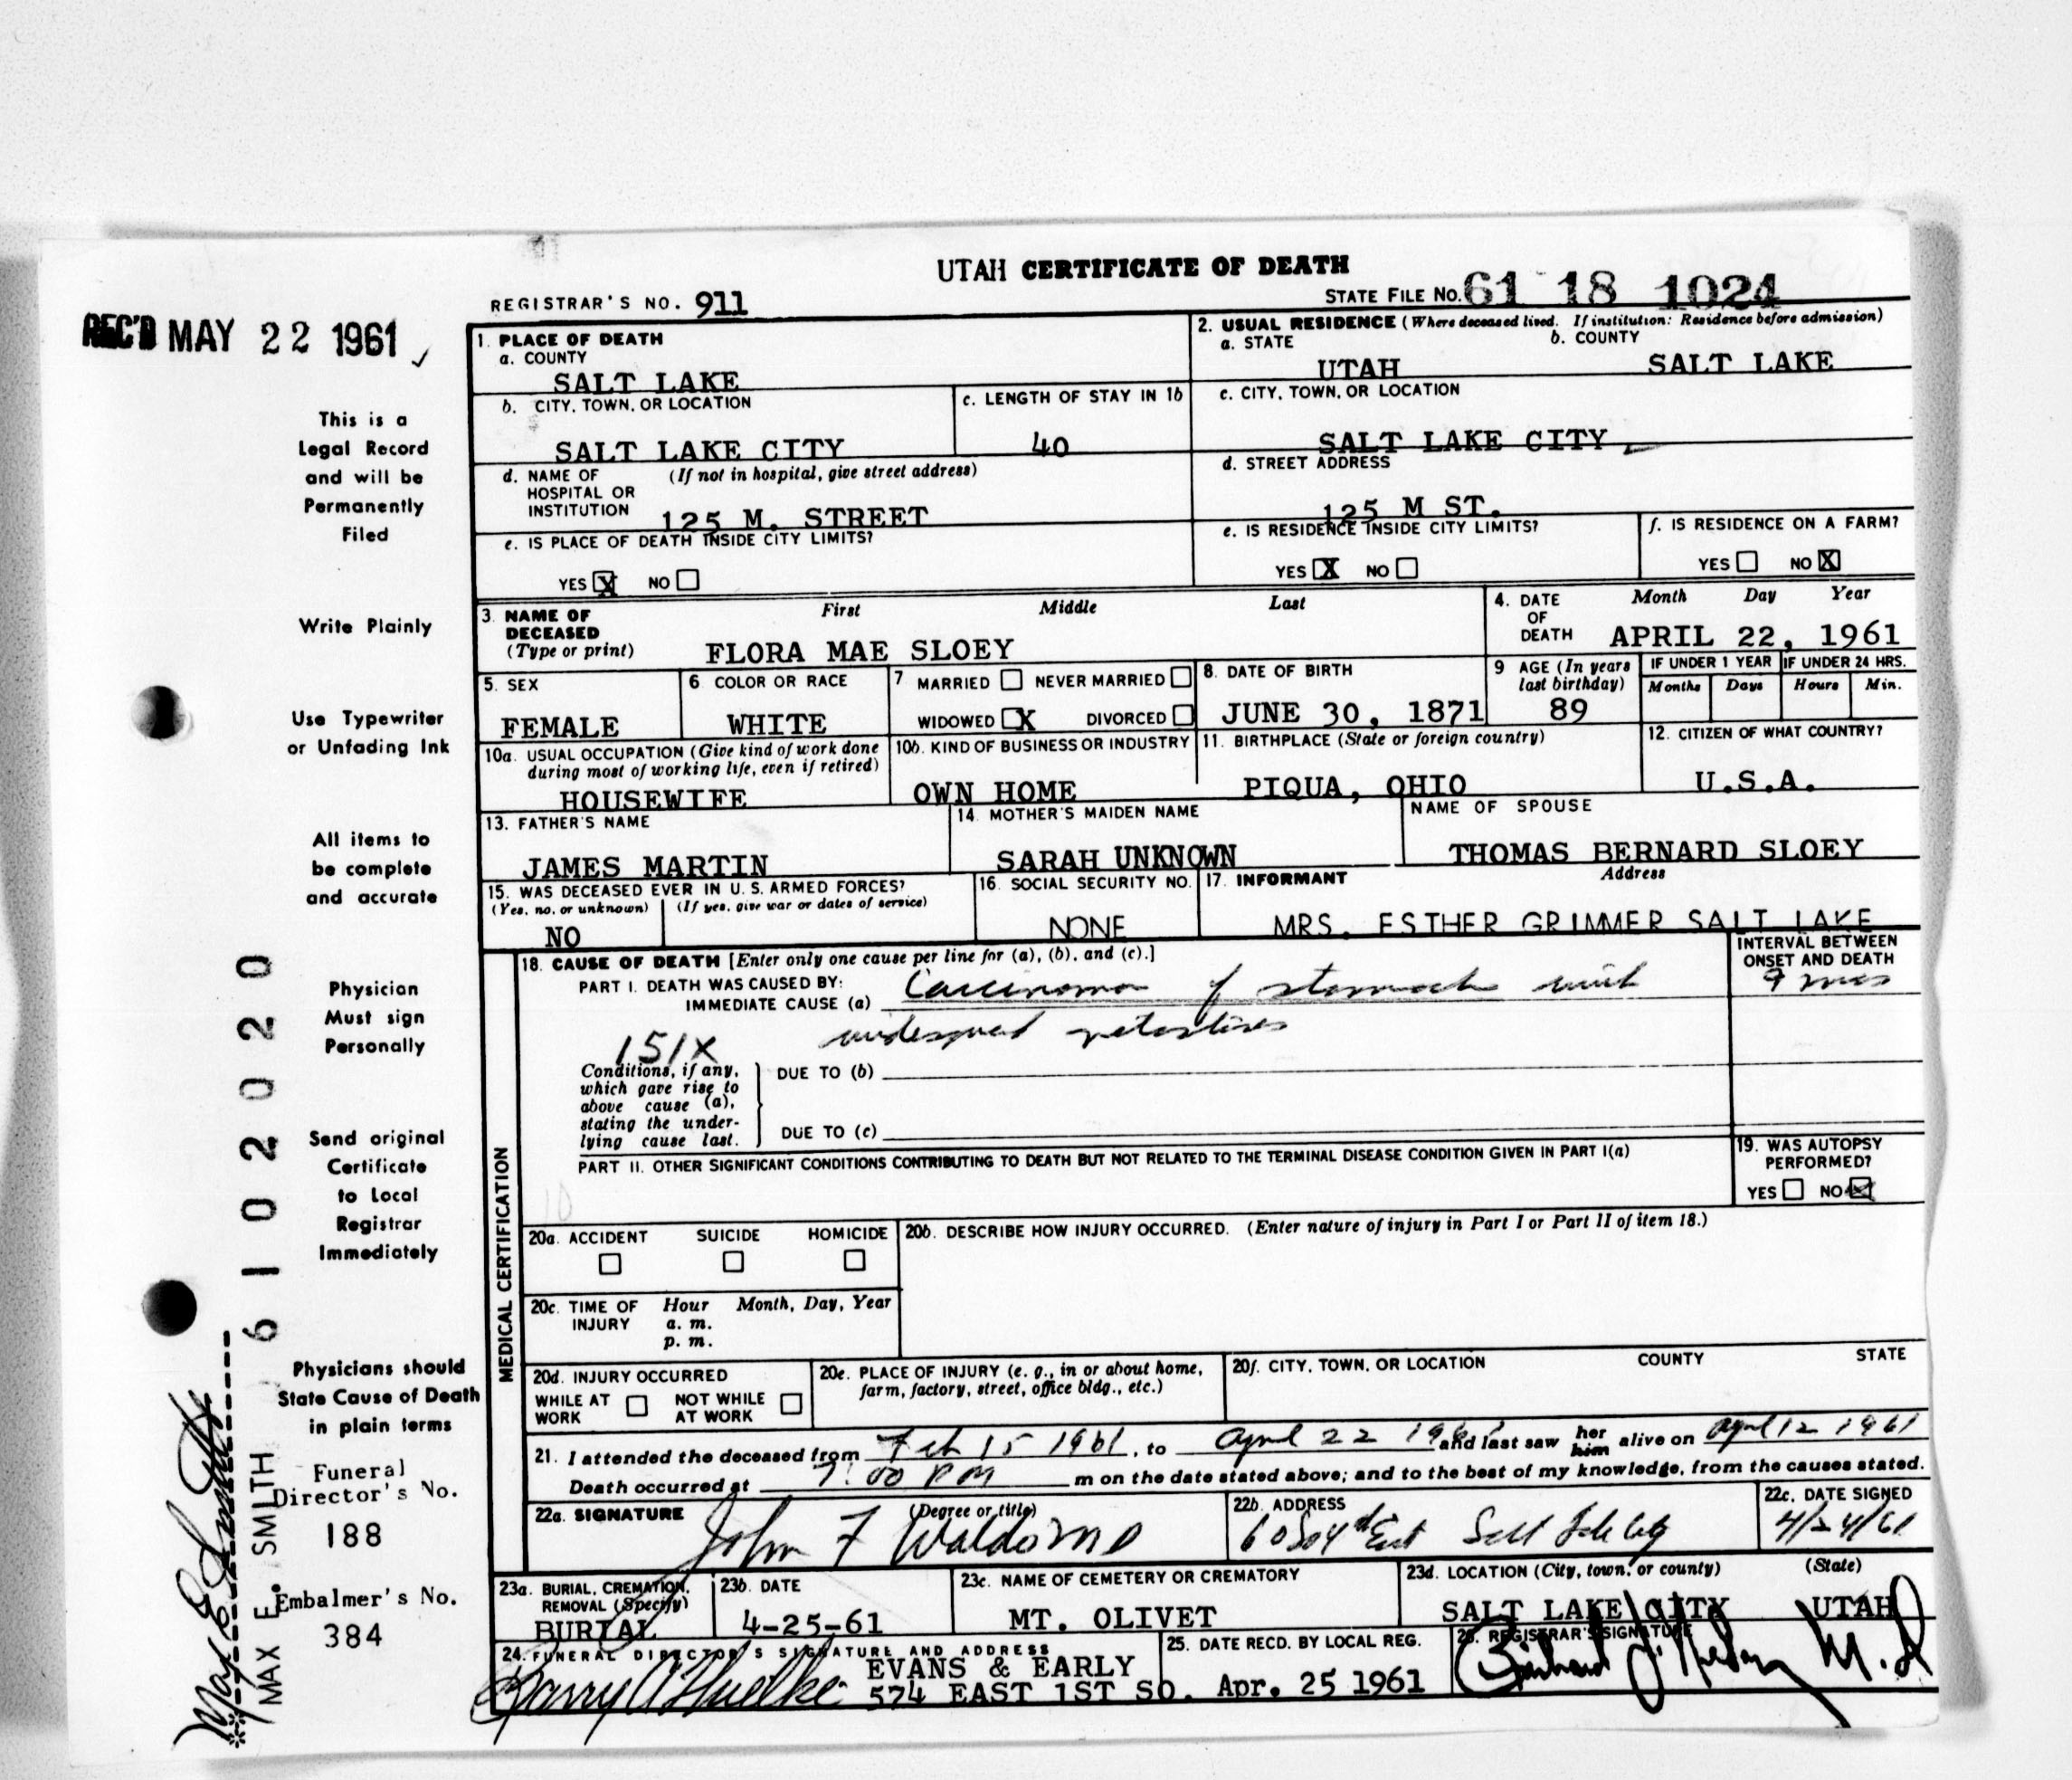 UTAH CERTIFICATE OF DEATH
REGISTRAR'S NO. 911
STATE FILE No. 61 18 1024
REC'D MAY 22 1961
1. PLACE OF DEATH
a. COUNTY
SALT LAKE
2. USUAL RESIDENCE (Where deceased lived. If institution: Residence before admission)
a. STATE b. COUNTY
UTAH SALT LAKE
b. CITY, TOWN, OR LOCATION
SALT LAKE CITY
c. LENGTH OF STAY IN 1b
40
c. CITY, TOWN, OR LOCATION
SALT LAKE CITY
d. NAME OF (If not in hospital, give street address)
HOSPITAL OR
INSTITUTION 125 M. STREET
d. STREET ADDRESS
125 M ST.
e. IS PLACE OF DEATH INSIDE CITY LIMITS?
YES X NO
e. IS RESIDENCE INSIDE CITY LIMITS?
YES X NO
f. IS RESIDENCE ON A FARM?
YES NO X
3. NAME OF DECEASED (Type or print) First Middle Last
FLORA MAE SLOEY
4. DATE OF DEATH Month Day Year
APRIL 22, 1961
5. SEX
FEMALE
6. COLOR OR RACE
WHITE
7 MARRIED NEVER MARRIED
WIDOWED X DIVORCED
8. DATE OF BIRTH
JUNE 30, 1871
9 AGE (In years last birthday)
89
IF UNDER 1 YEAR IF UNDER 24 HRS.
Months Days Hours Min.
10a. USUAL OCCUPATION (Give kind of work done
during most of working life, even if retired)
HOUSEWIFE
10b. KIND OF BUSINESS OR INDUSTRY
OWN HOME
11. BIRTHPLACE (State or foreign country)
PIQUA, OHIO
12. CITIZEN OF WHAT COUNTRY?
U.S.A.
13. FATHER'S NAME
JAMES MARTIN
14. MOTHER'S MAIDEN NAME
SARAH UNKNOWN
NAME OF SPOUSE
THOMAS BERNARD SLOEY
15. WAS DECEASED EVER IN U. S. ARMED FORCES?
(Yes, no, or unknown) (If yes, give war or dates of service)
NO
16. SOCIAL SECURITY NO.
NONE
17. INFORMANT Address
MRS. ESTHER GRIMMER SALT LAKE
MEDICAL CERTIFICATION
18. CAUSE OF DEATH [Enter only one cause per line for (a), (b), and (c).]
INTERVAL BETWEEN
ONSET AND DEATH
PART I. DEATH WAS CAUSED BY:
IMMEDIATE CAUSE (a) Carcinoma of stomach with
widespread metastases
9 mos
151X
Conditions, if any,
which gave rise to
above cause (a),
stating the under-
lying cause last.
DUE TO (b)
DUE TO (c)
PART II. OTHER SIGNIFICANT CONDITIONS CONTRIBUTING TO DEATH BUT NOT RELATED TO THE TERMINAL DISEASE CONDITION GIVEN IN PART I(a)
10
19. WAS AUTOPSY
PERFORMED?
YES NO X
20a. ACCIDENT SUICIDE HOMICIDE
20b. DESCRIBE HOW INJURY OCCURRED. (Enter nature of injury in Part I or Part II of item 18.)
20c. TIME OF INJURY Hour Month, Day, Year
a. m.
p. m.
20d. INJURY OCCURRED
WHILE AT WORK NOT WHILE AT WORK
20e. PLACE OF INJURY (e. g., in or about home,
farm, factory, street, office bldg., etc.)
20f. CITY, TOWN, OR LOCATION COUNTY STATE
21. I attended the deceased from Feb 15 1961, to April 22 1961 and last saw her him alive on April 12 1961
Death occurred at 7:00 PM m on the date stated above; and to the best of my knowledge, from the causes stated.
22a. SIGNATURE (Degree or title)
John F Waldo MD
22b. ADDRESS
60 So 4th East Salt Lake City
22c. DATE SIGNED
4/24/61
23a. BURIAL, CREMATION, REMOVAL (Specify)
BURIAL
23b. DATE
4-25-61
23c. NAME OF CEMETERY OR CREMATORY
MT. OLIVET
23d. LOCATION (City, town, or county) (State)
SALT LAKE CITY UTAH
24. FUNERAL DIRECTOR'S SIGNATURE AND ADDRESS
EVANS & EARLY
574 EAST 1ST SO.
25. DATE RECD. BY LOCAL REG.
Apr. 25 1961
26. REGISTRAR'S SIGNATURE
M.D
This is a
Legal Record
and will be
Permanently
Filed
Write Plainly
Use Typewriter
or Unfading Ink
All items to
be complete
and accurate
Physician
Must sign
Personally
Send original
Certificate
to Local
Registrar
Immediately
Physicians should
State Cause of Death
in plain terms
Funeral
Director's No.
188
Embalmer's No.
384
6102020
Max E. Smith
MAX E. SMITH